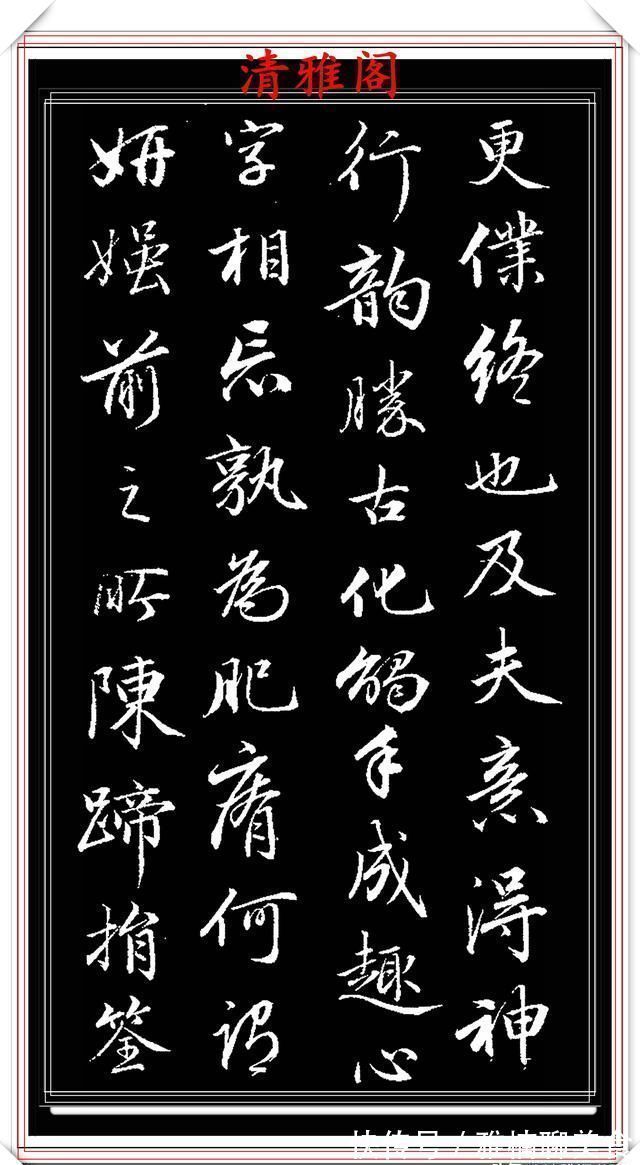 清雅阁
更僕終也及夫意得神
行韵勝古化觸手成趣心
字相忘孰為肥瘠何謂
妍媸前之所陳蹄捐筌
快传号 / 雅楠聊美食